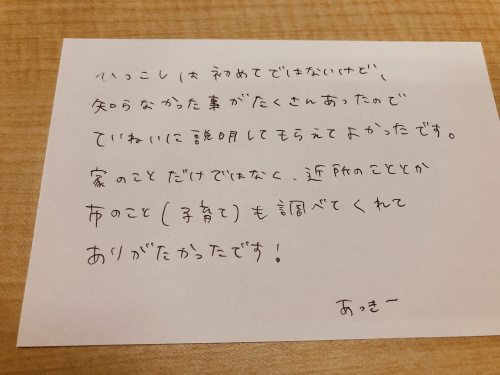 ひっこしは初めてではないけど、
知らなかった事がたくさんあったので
ていねいに説明してもらえてよかったです。
家のことだけではなく、近所のこととか
市のこと(子育て)も調べてくれて
ありがたかったです！
あっきー